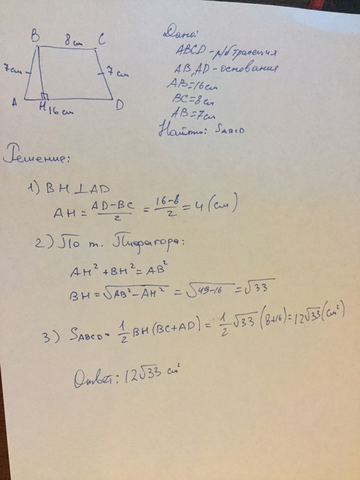 B 8 см C
7 см 7 см
A H 16 см D
Дано:
ABCD - р/б трапеция
AB, AD - основания
AD = 16 см
BC = 8 см
AB = 7 см
Найти: SABCD
Решение:
1) BH ⊥ AD
AH = (AD-BC)/2 = (16-8)/2 = 4 (см)
2) По т. Пифагора:
AH² + BH² = AB²
BH = √(AB² - AH²) = √(49-16) = √33
3) SABCD = 1/2 BH (BC + AD) = 1/2 √33 (8+16) = 12√33 (см²)
Ответ: 12√33 см²